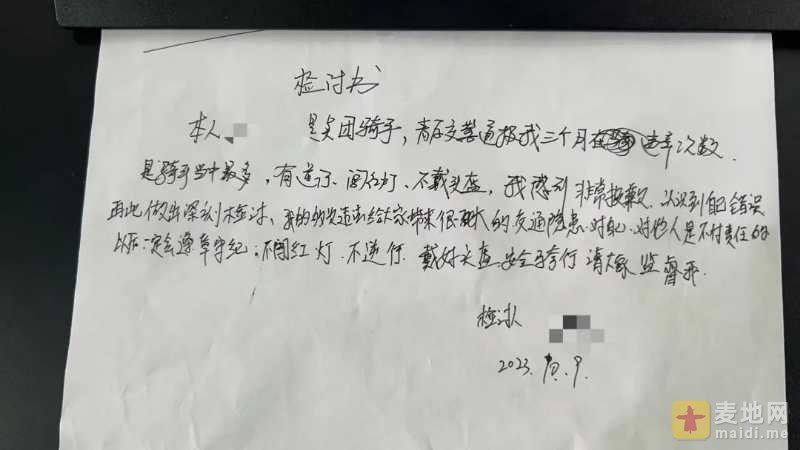 检讨书
本人 是美团骑手，青石交警通报我三个月 违章次数
是骑手当中最多，有逆行、闯红灯、不戴头盔，我感到非常抱歉，认识到自己错误
因此做出深刻检讨，我的 给大家带来很大的交通隐患 对自己、对他人是不负责任的
以后一定会遵章守纪：不闯红灯、不逆行、戴好头盔 安全骑行 请大家监督我.
检讨人
2023.10.9.
麦地网
maidi.me